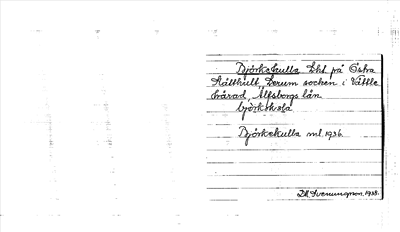 Björkekulla Lht på Östra
Håttkult Lerum socken i Vättle
härad, Älfsborgs län
björkekola
Björkekulla ml. 1936.
D.A. Svenungsson, 1938.